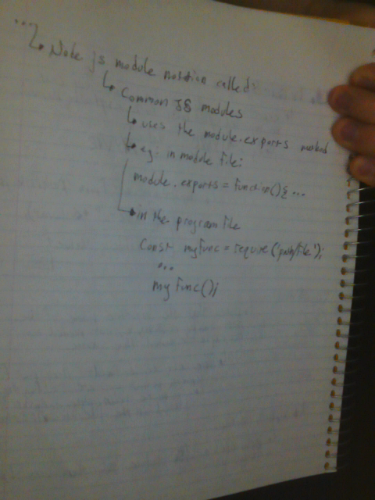 ...
Node js module notation called:
Common JS modules
uses the module.exports method
eg. in module file:
module.exports = function(){ ...
in the program file
const myfunc = require('path/file');
...
myfunc();